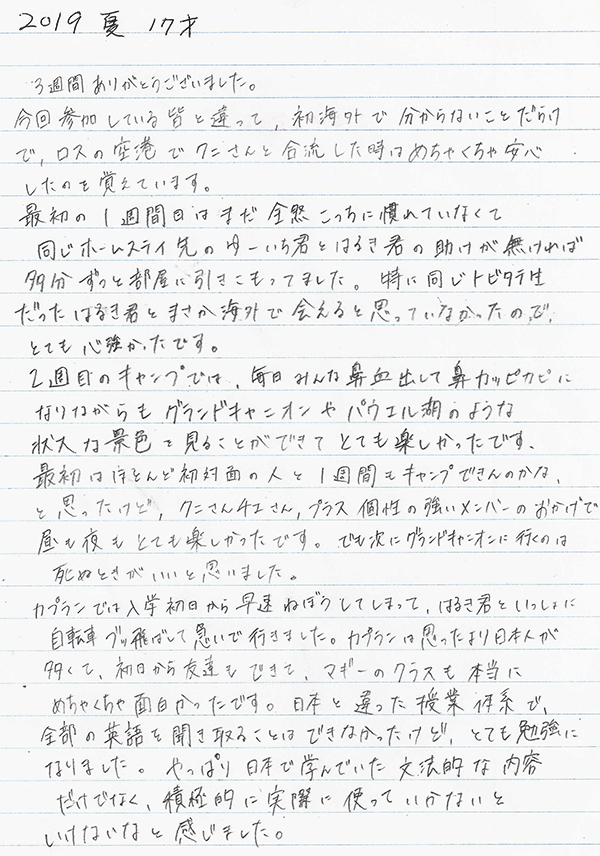 2019 夏 17才
3週間ありがとうございました。
今回参加している皆と違って、初海外で分からないことだらけ
で、ロスの空港でクニさんと合流した時はめちゃくちゃ安心
したのを覚えています。
最初の1週間目はまだ全然こっちに慣れていなくて
同じホームステイ先のゆーいち君とはるき君の助けが無ければ
多分ずっと部屋に引きこもってました。特に同じトビタテ生
だったはるき君とまさか海外で会えると思っていなかったので、
とても心強かったです。
2週目のキャンプでは、毎日みんな鼻血出して鼻カッピカピに
なりながらもグランドキャニオンやパウエル湖のような
状大な景色を見ることができてとても楽しかったです、
最初はほとんど初対面の人と1週間もキャンプできんのかな、
と思ったけど、クニさんチエさん,プラス個性の強いメンバーのおかげで
昼も夜もとても楽しかったです。でも次にグランドキャニオンに行くのは
死ぬときがいいと思いました。
カプランでは入学初日から早速ねぼうしてしまって、はるき君といっしょに
自転車ブッ飛ばして急いで行きました。カプランは思ったより日本人が
多くて、初日から友達もできて、マギーのクラスも本当に
めちゃくちゃ面白かったです。日本と違った授業体系で、
全部の英語を聞き取ることはできなかったけど、とても勉強に
なりました。やっぱり日本で学んでいた文法的な内容
だけでなく、積極的に実際に使っていかないと
いけないなと感じました。